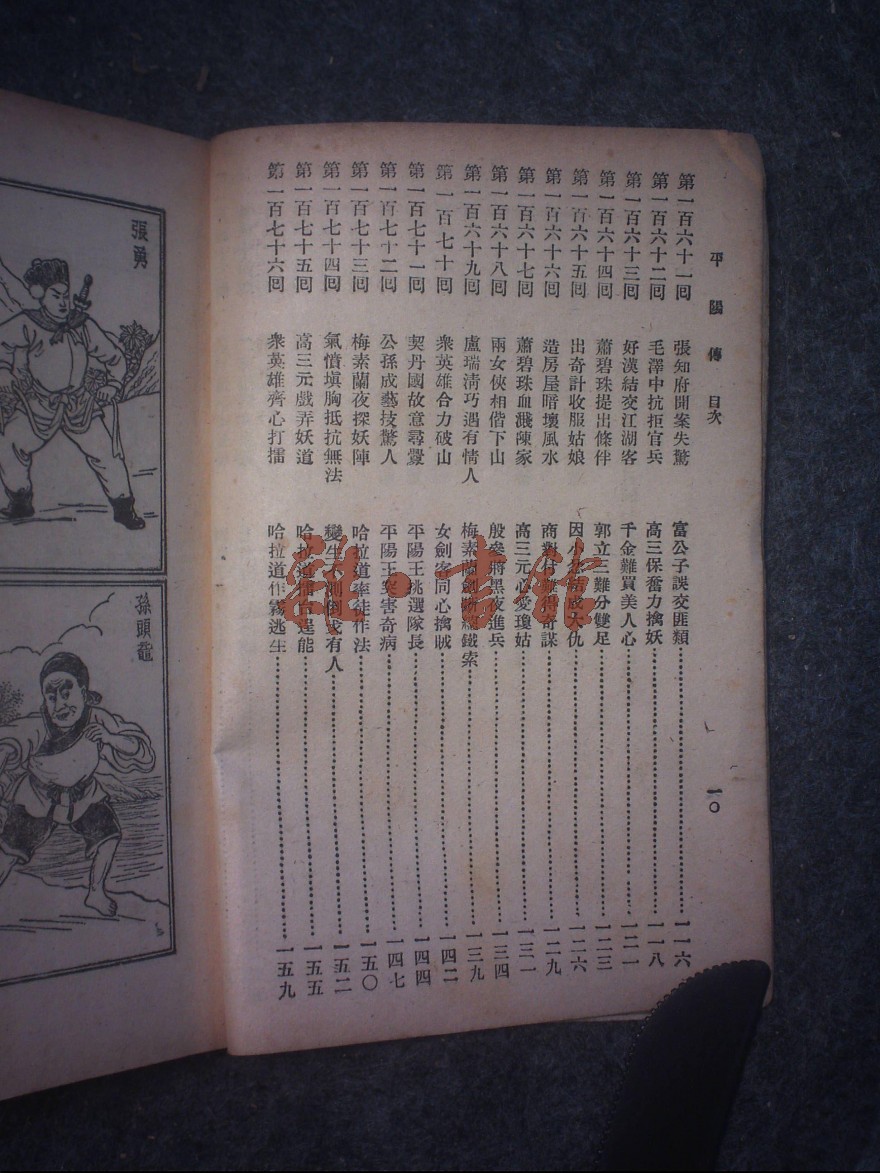 平陽傳 目次 一〇
第一百六十一回 張知府開案失驚 富公子誤交匪類 一一六
第一百六十二回 毛澤中抗拒官兵 高三保奮力擒妖 一一八
第一百六十三回 好漢結交江湖客 千金難買美人心 一二一
第一百六十四回 蕭碧珠提出條件 郭立三難分鰜足 一二三
第一百六十五回 出奇計收服姑娘 因小忿結成大仇 一二六
第一百六十六回 造房屋暗壞風水 商對付難得奇謀 一二九
第一百六十七回 蕭碧珠血濺陳家 高三元心愛瓊姑 一三一
第一百六十八回 兩女俠相偕下山 殷參將黑夜進兵 一三四
第一百六十九回 盧瑞清巧遇有情人 梅素蘭劍斷纜鐵索 一三九
第一百七十回 衆英雄合力破山 女劍客同心擒賊 一四二
第一百七十一回 契丹國故意尋釁 平陽王挑選隊長 一四四
第一百七十二回 公孫成藝技驚人 平陽王受害奇病 一四七
第一百七十三回 梅素蘭夜探妖陣 哈拉道率徒作法 一五〇
第一百七十四回 氣憤填胸抵抗無法 變生不測倒戈有人 一五二
第一百七十五回 高三元戲弄妖道 哈拉道擂台逞能 一五五
第一百七十六回 衆英雄齊心打擂 哈拉道作霧逃生 一五九
張勇
孫頭黿